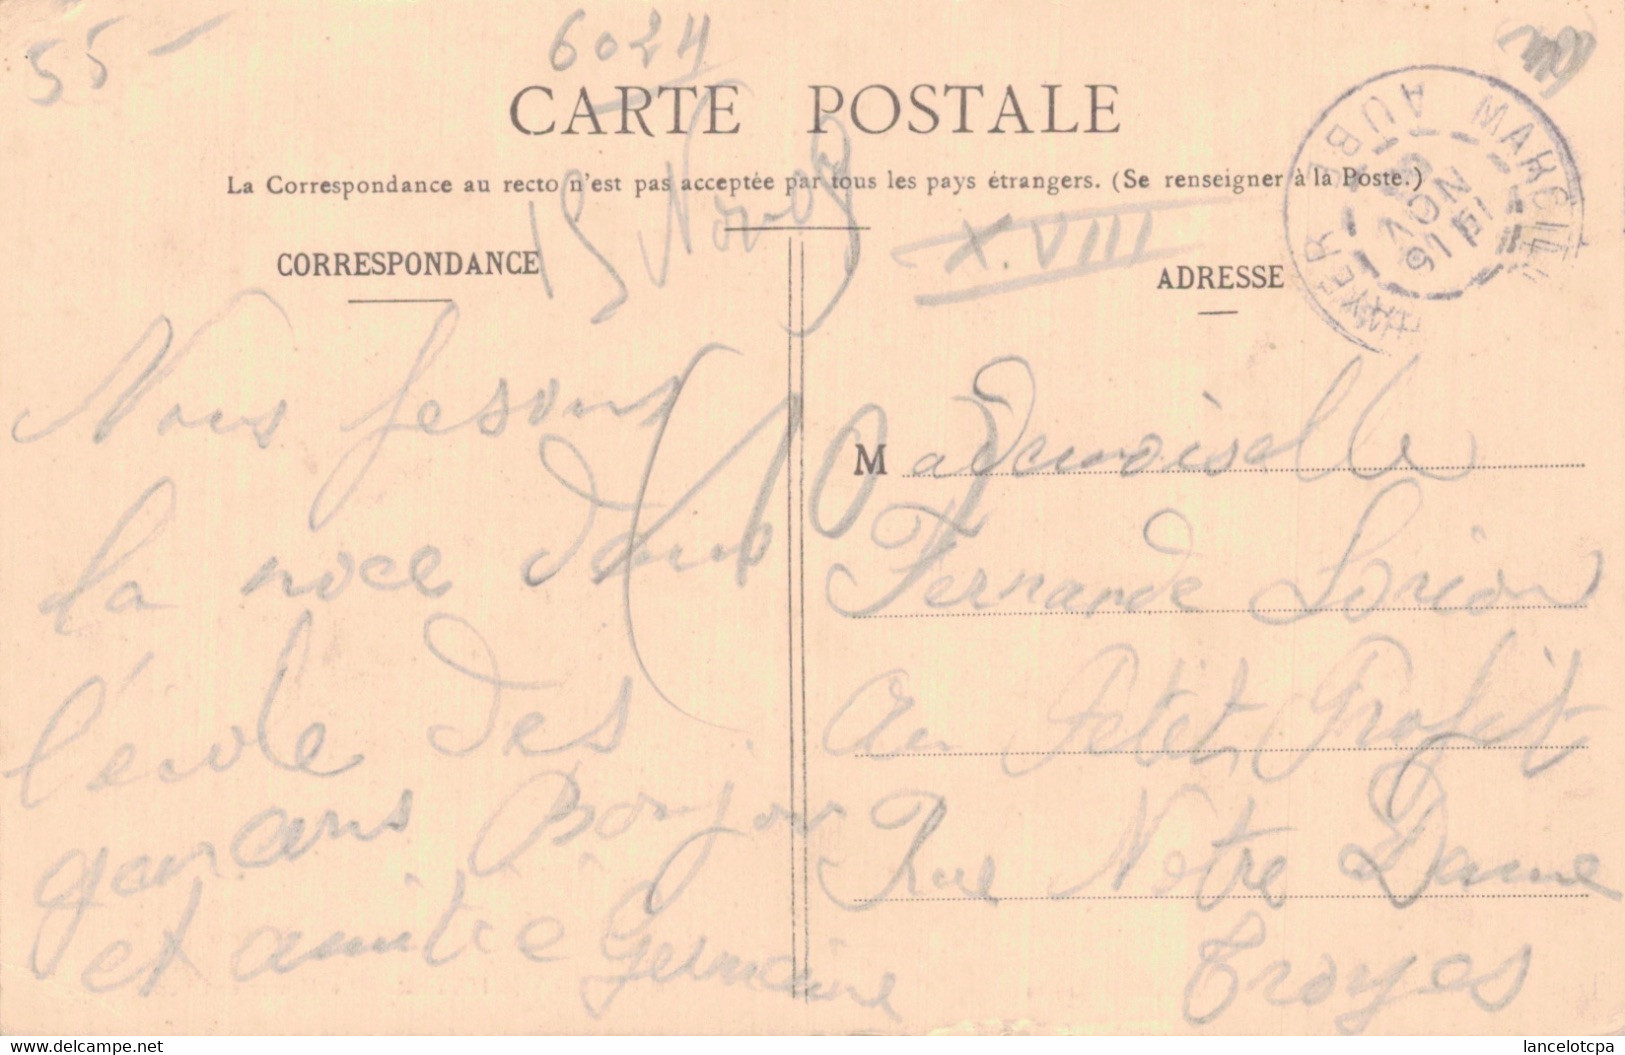 55 -
6024
CARTE POSTALE
La Correspondance au recto n'est pas acceptée par tous les pays étrangers. (Se renseigner à la Poste.)
15 Nov 09
XVIII
CORRESPONDANCE
Nous fesons
la noce dans
l'école des
garcons Bonjour
et amitie Germaine
10
ADRESSE
MAREUIL
AUBE
15
16
NOV
Mademoiselle
Fernande Lorion
Au Petit Profit
Rue Notre Dame
Troyes
https://www.delcampe.net
lancelotcpa